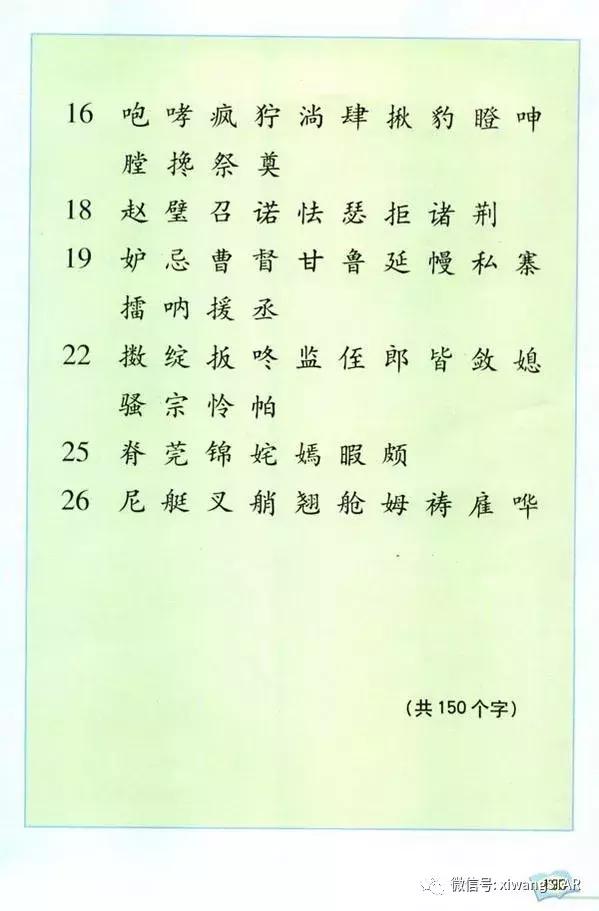 16 咆 哮 疯 狞 淌 肆 揪 豹 瞪 呻
膛 搀 祭 奠
18 赵 璧 召 诺 怯 瑟 拒 诸 荆
19 妒 忌 曹 督 甘 鲁 延 幔 私 寨
擂 呐 援 丞
22 擞 绽 扳 咚 监 侄 郎 皆 敛 媳
骚 宗 怜 帕
25 脊 莞 锦 姹 嫣 暇 颇
26 尼 艇 叉 艄 翘 舱 姆 祷 雇 哗
(共 150 个字)
微信号: xiwang